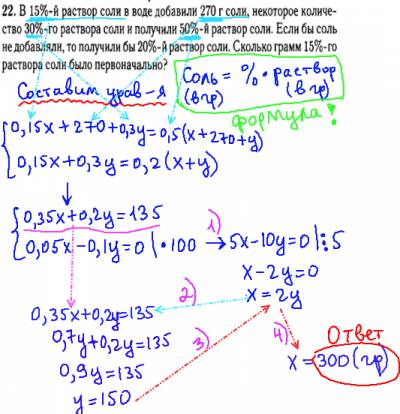 22. В 15%-й раствор соли в воде добавили 270 г соли, некоторое количе-
ство 30%-го раствора соли и получили 50%-й раствор соли. Если бы соль
не добавляли, то получили бы 20%-й раствор соли. Сколько грамм 15%-го
раствора соли было первоначально?
Соль = % · раствор
(в гр) (в гр)
формула!
Составим урав-я
0,15x + 270 + 0,3y = 0,5(x + 270 + y)
0,15x + 0,3y = 0,2(x + y)
0,35x + 0,2y = 135
1)
0,05x - 0,1y = 0 | · 100 → 5x - 10y = 0 |: 5
x - 2y = 0
2)
x = 2y
0,35x + 0,2y = 135
0,7y + 0,2y = 135
3)
4)
Ответ
0,9y = 135
x = 300 (гр)
y = 150